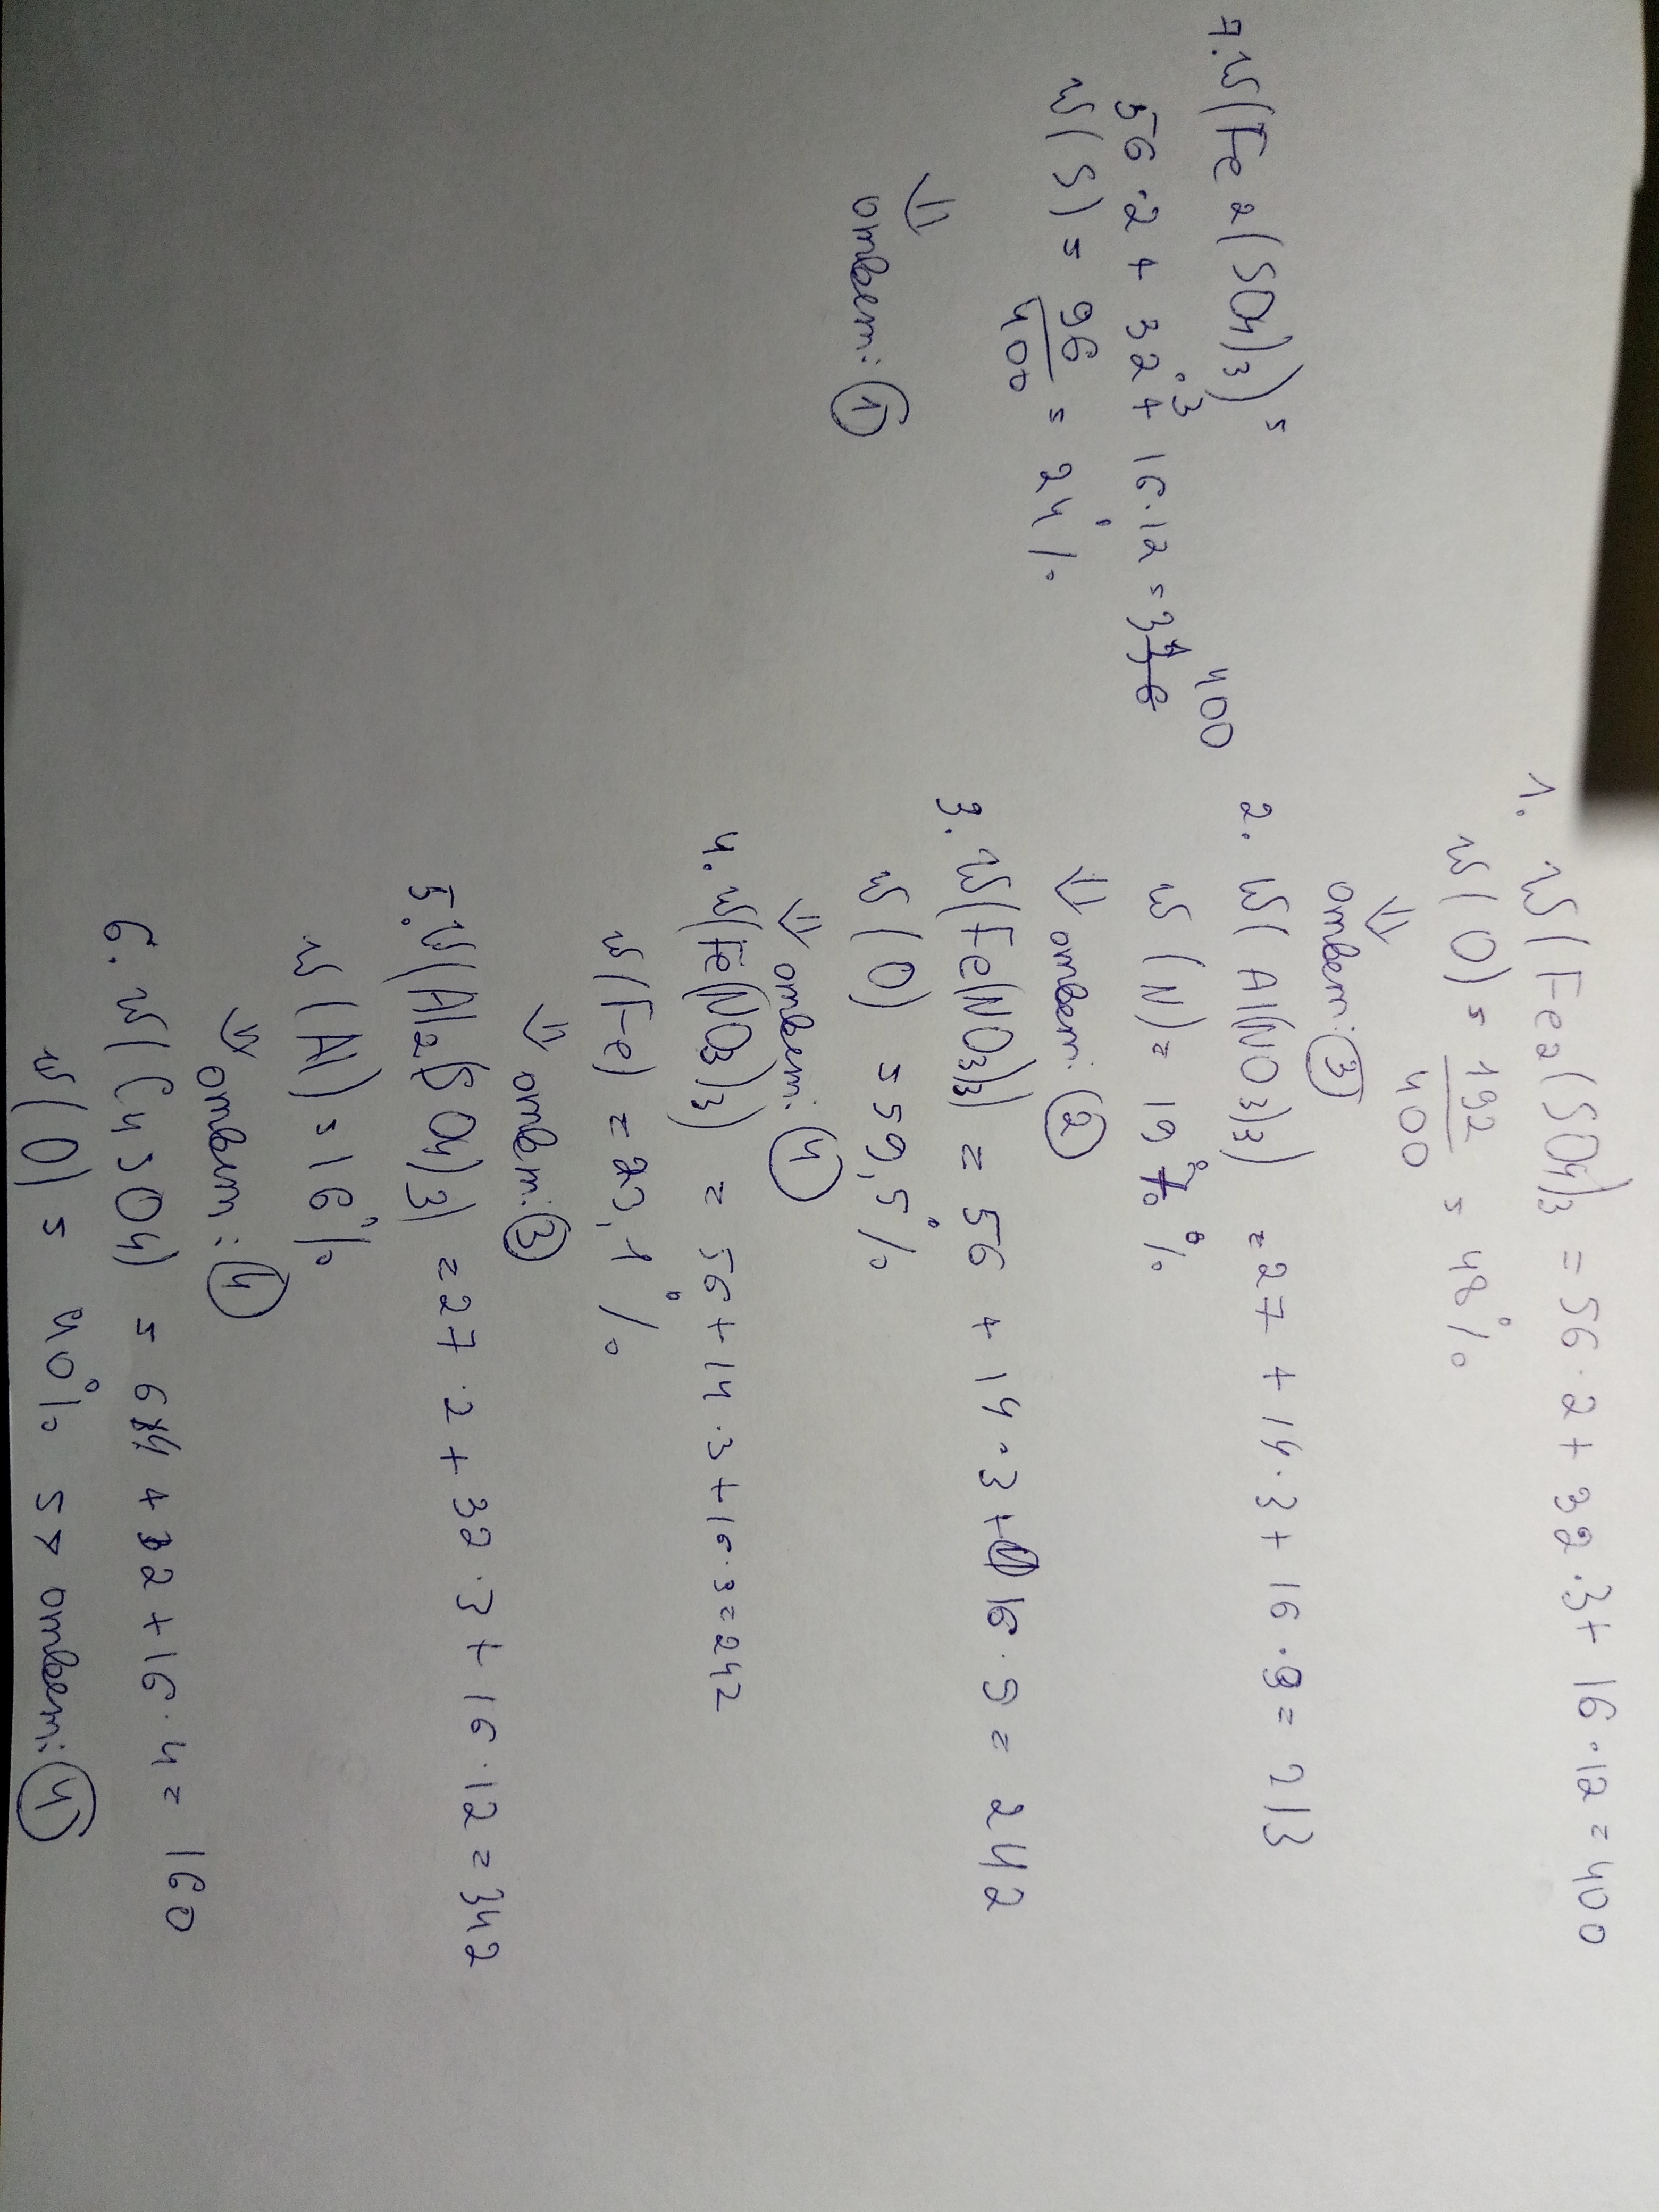 1. W(Fe2(SO4)3 = 56·2+32·3+16·12=400
W(O)=192/400=48%
⇓
ответ: 3
2. W(Al(NO3)3)=27+14·3+16·9=213
W(N)=19%
⇓ ответ: 2
3. W(Fe(NO3)3)=56+14·3+16·9=242
W(O)=59,5%
⇓ ответ: 4
4. W(Fe(NO3)3)=56+14·3+16·3=242
W(Fe)=23,1%
⇓ ответ: 3
5. W(Al2(SO4)3)=27·2+32·3+16·12=342
W(Al)=16%
⇓ ответ: 4
6. W(CuSO4)=64+32+16·4=160
W(O)=40% => ответ: 4
7. W(Fe2(SO4)3)=
56·2+32·3+16·12=400
W(S)=96/400=24%
⇓
ответ: 1